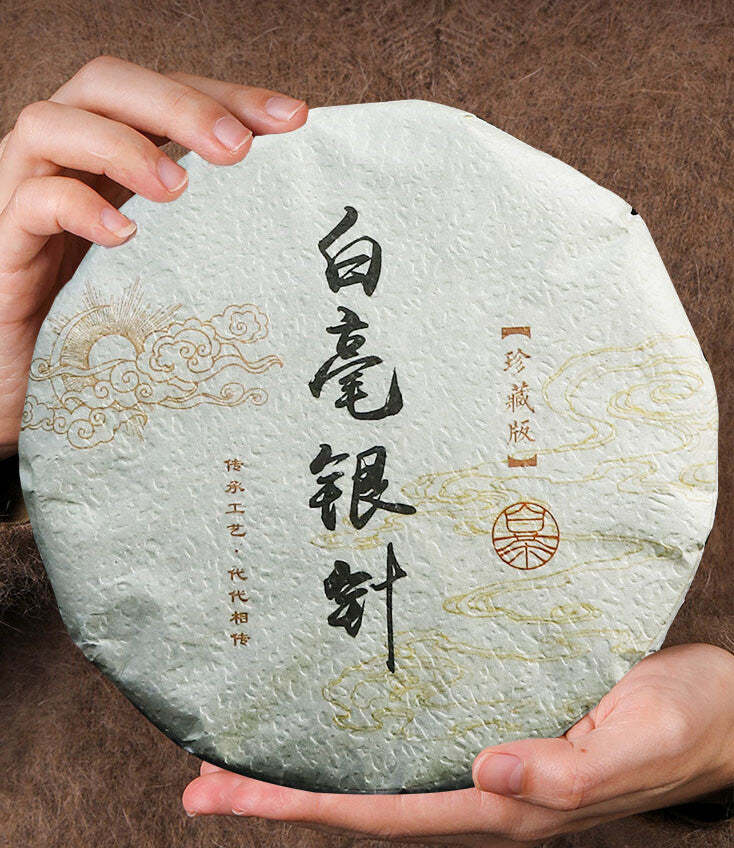 白毫银针
【珍藏版】
白茶
传承工艺·代代相传